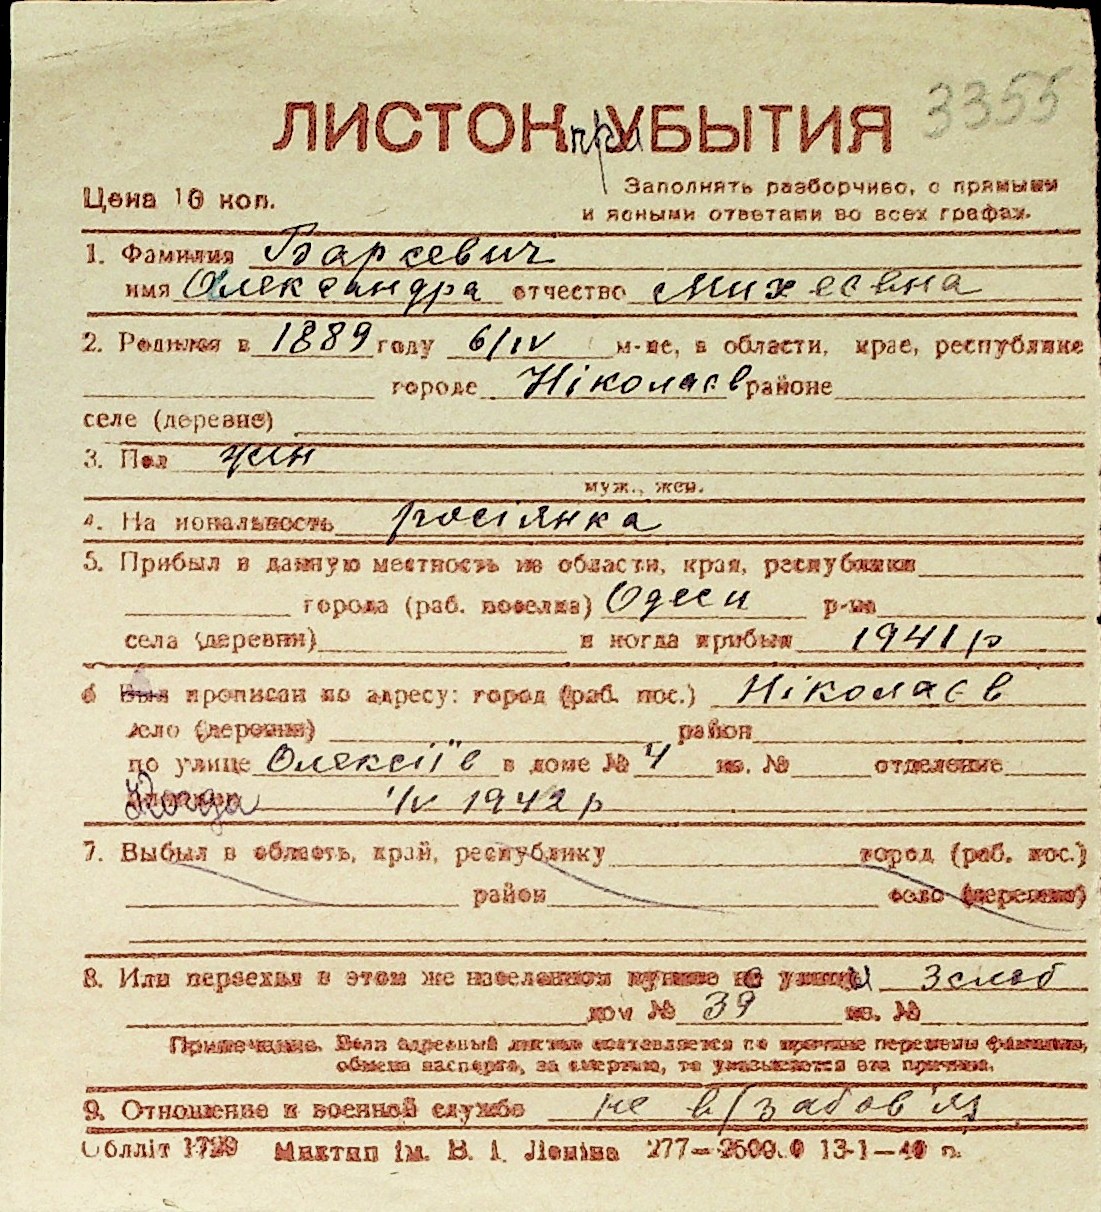 3355
ЛИСТОК при УБЫТИЯ
Цена 10 коп.
Заполнять разборчиво, с прямыми
и ясными ответами во всех графах.
1. Фамилия Барсевич
имя Олександра отчество Михеевна
2. Родился в 1889 году 6/IV м-це, в области, крае, республике
городе Ніколаєв районе
селе (деревне)
3. Пол жін
муж., жен.
4. Национальность росіянка
5. Прибыл в данную местность из области, края, республики
города (раб. поселка) Одеси р-на
села (деревни) и когда прибыл 1941 р
6 Был прописан по адресу: город (раб. пос.) Ніколаєв
село (деревня) район
по улице Олексіїв в доме № 4 кв. № отделение
Когда 1/IV 1942 р
7. Выбыл в область, край, республику город (раб. пос.)
район село (деревню)
8. Или переехал в этом же населенном пункте с улицы 3 слоб
дом № 39 кв. №
Примечание. Если адресный листок составляется по причине перемены фамилии,
обмена паспорта, за смертью, то указывается эта причина.
9. Отношение к военной службе не в/забов'яз
Облліт 1729 Миктип ім. В. І. Леніна 277— 13-1—40 р.